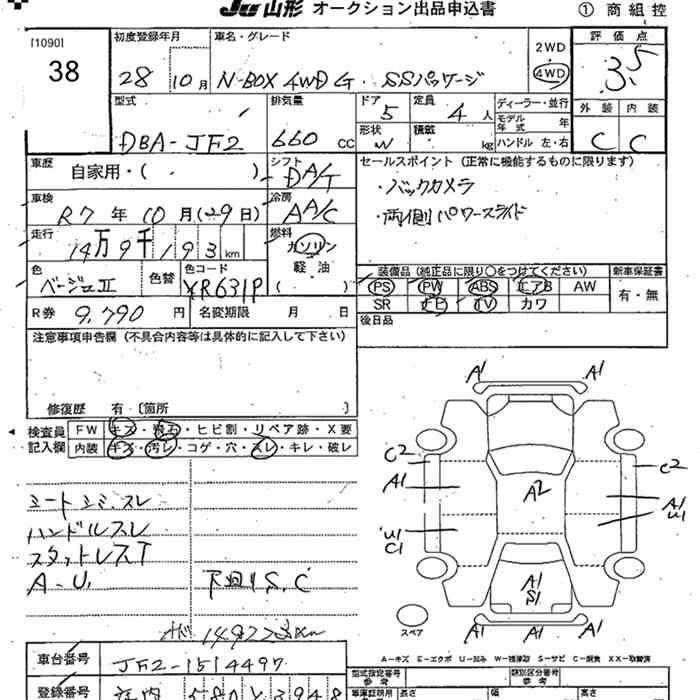 JU山形 オークション出品申込書 ① 商組控
[1090]
38
初度登録年月
28 10月
車名・グレード
N-BOX 4WD G SSパッケージ
2WD
4WD
評価点
3.5
型式
DBA-JF2
排気量
660 CC
ドア
5
定員
4人
形状
W
積載
kg
ディーラー・並行
モデル年式 年
ハンドル 左・右
外装 内装
C C
車歴
自家用・( )
シフト
DA/T
セールスポイント (正常に機能するものに限ります)
・バックカメラ
・両側パワースライド
車検
R7年10月(29日)
冷房
AA/C
走行
14万9千193km
燃料
ガソリン
軽油
( )
色
ベージュII
色替
色コード
YR631P
装備品 (純正品に限り○をつけてください)
新車保証書
PS PW ABS エアB AW
SR ナビ TV カワ
有・無
R券 9,790円
名変期限 月 日
後日品
注意事項申告欄 (不具合内容等は具体的に記入して下さい)
修復歴 有 [箇所 ]
検査員記入欄
FW キズ・飛石・ヒビ割・リペア跡・X要
内装 キズ・汚レ・コゲ・穴・スレ・キレ・破レ
シートシミ、スレ
ハンドルスレ
スタットレスT
A-U,
下回りS,C
149223km
A1 A1
C2 C2
A1 A2 A1
U1
U1
C1
A1
S1
A1 A1 A1
スペア
A=キズ E=エクボ U=凹み W=補修跡 S=サビ C=腐食 XX=取替済
車台番号
JF2-1514497
登録番号
庄内 580 3948
型式指定番号
参考
類別区分番号
参考
長さ 幅 高さ